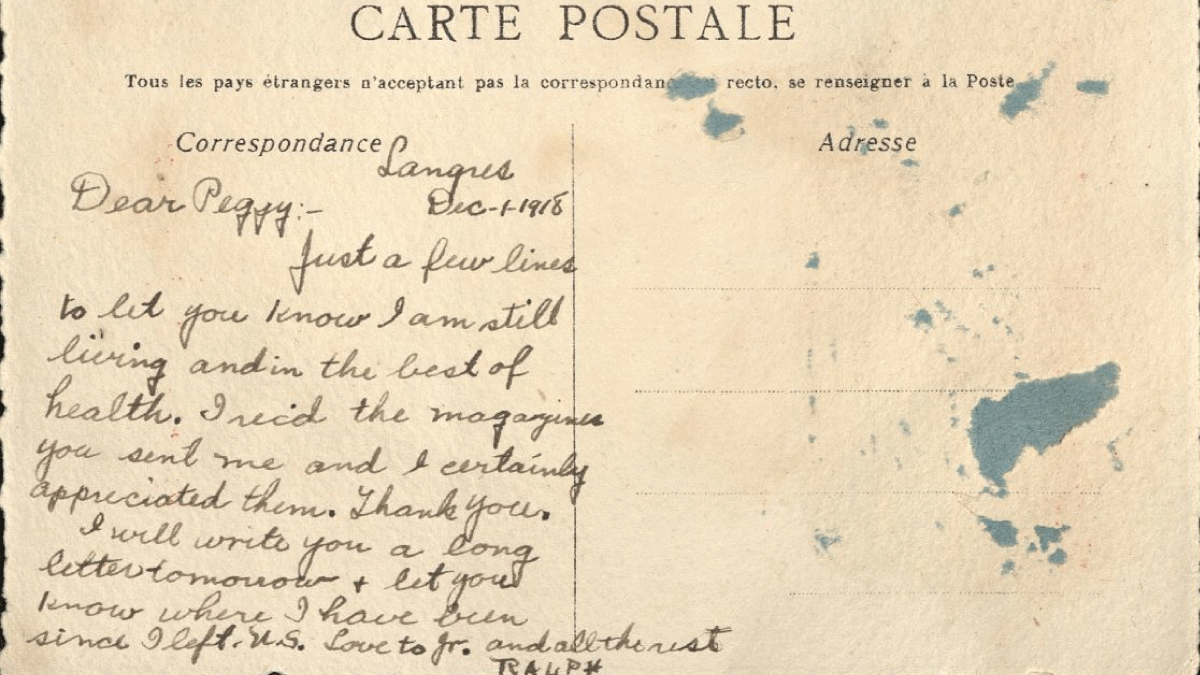 CARTE POSTALE
Tous les pays étrangers n'acceptant pas la correspondan recto, se renseigner à la Poste
Correspondance
Adresse
Langres
Dear Peggy:- Dec-1-1918
Just a few lines
to let you know I am still
living and in the best of
health. I rec'd the magazines
you sent me and I certainly
appreciated them. Thank you.
I will write you a long
letter tomorrow + let you
know where I have been
since I left U.S. Love to Jr. and all the rest
RALPH